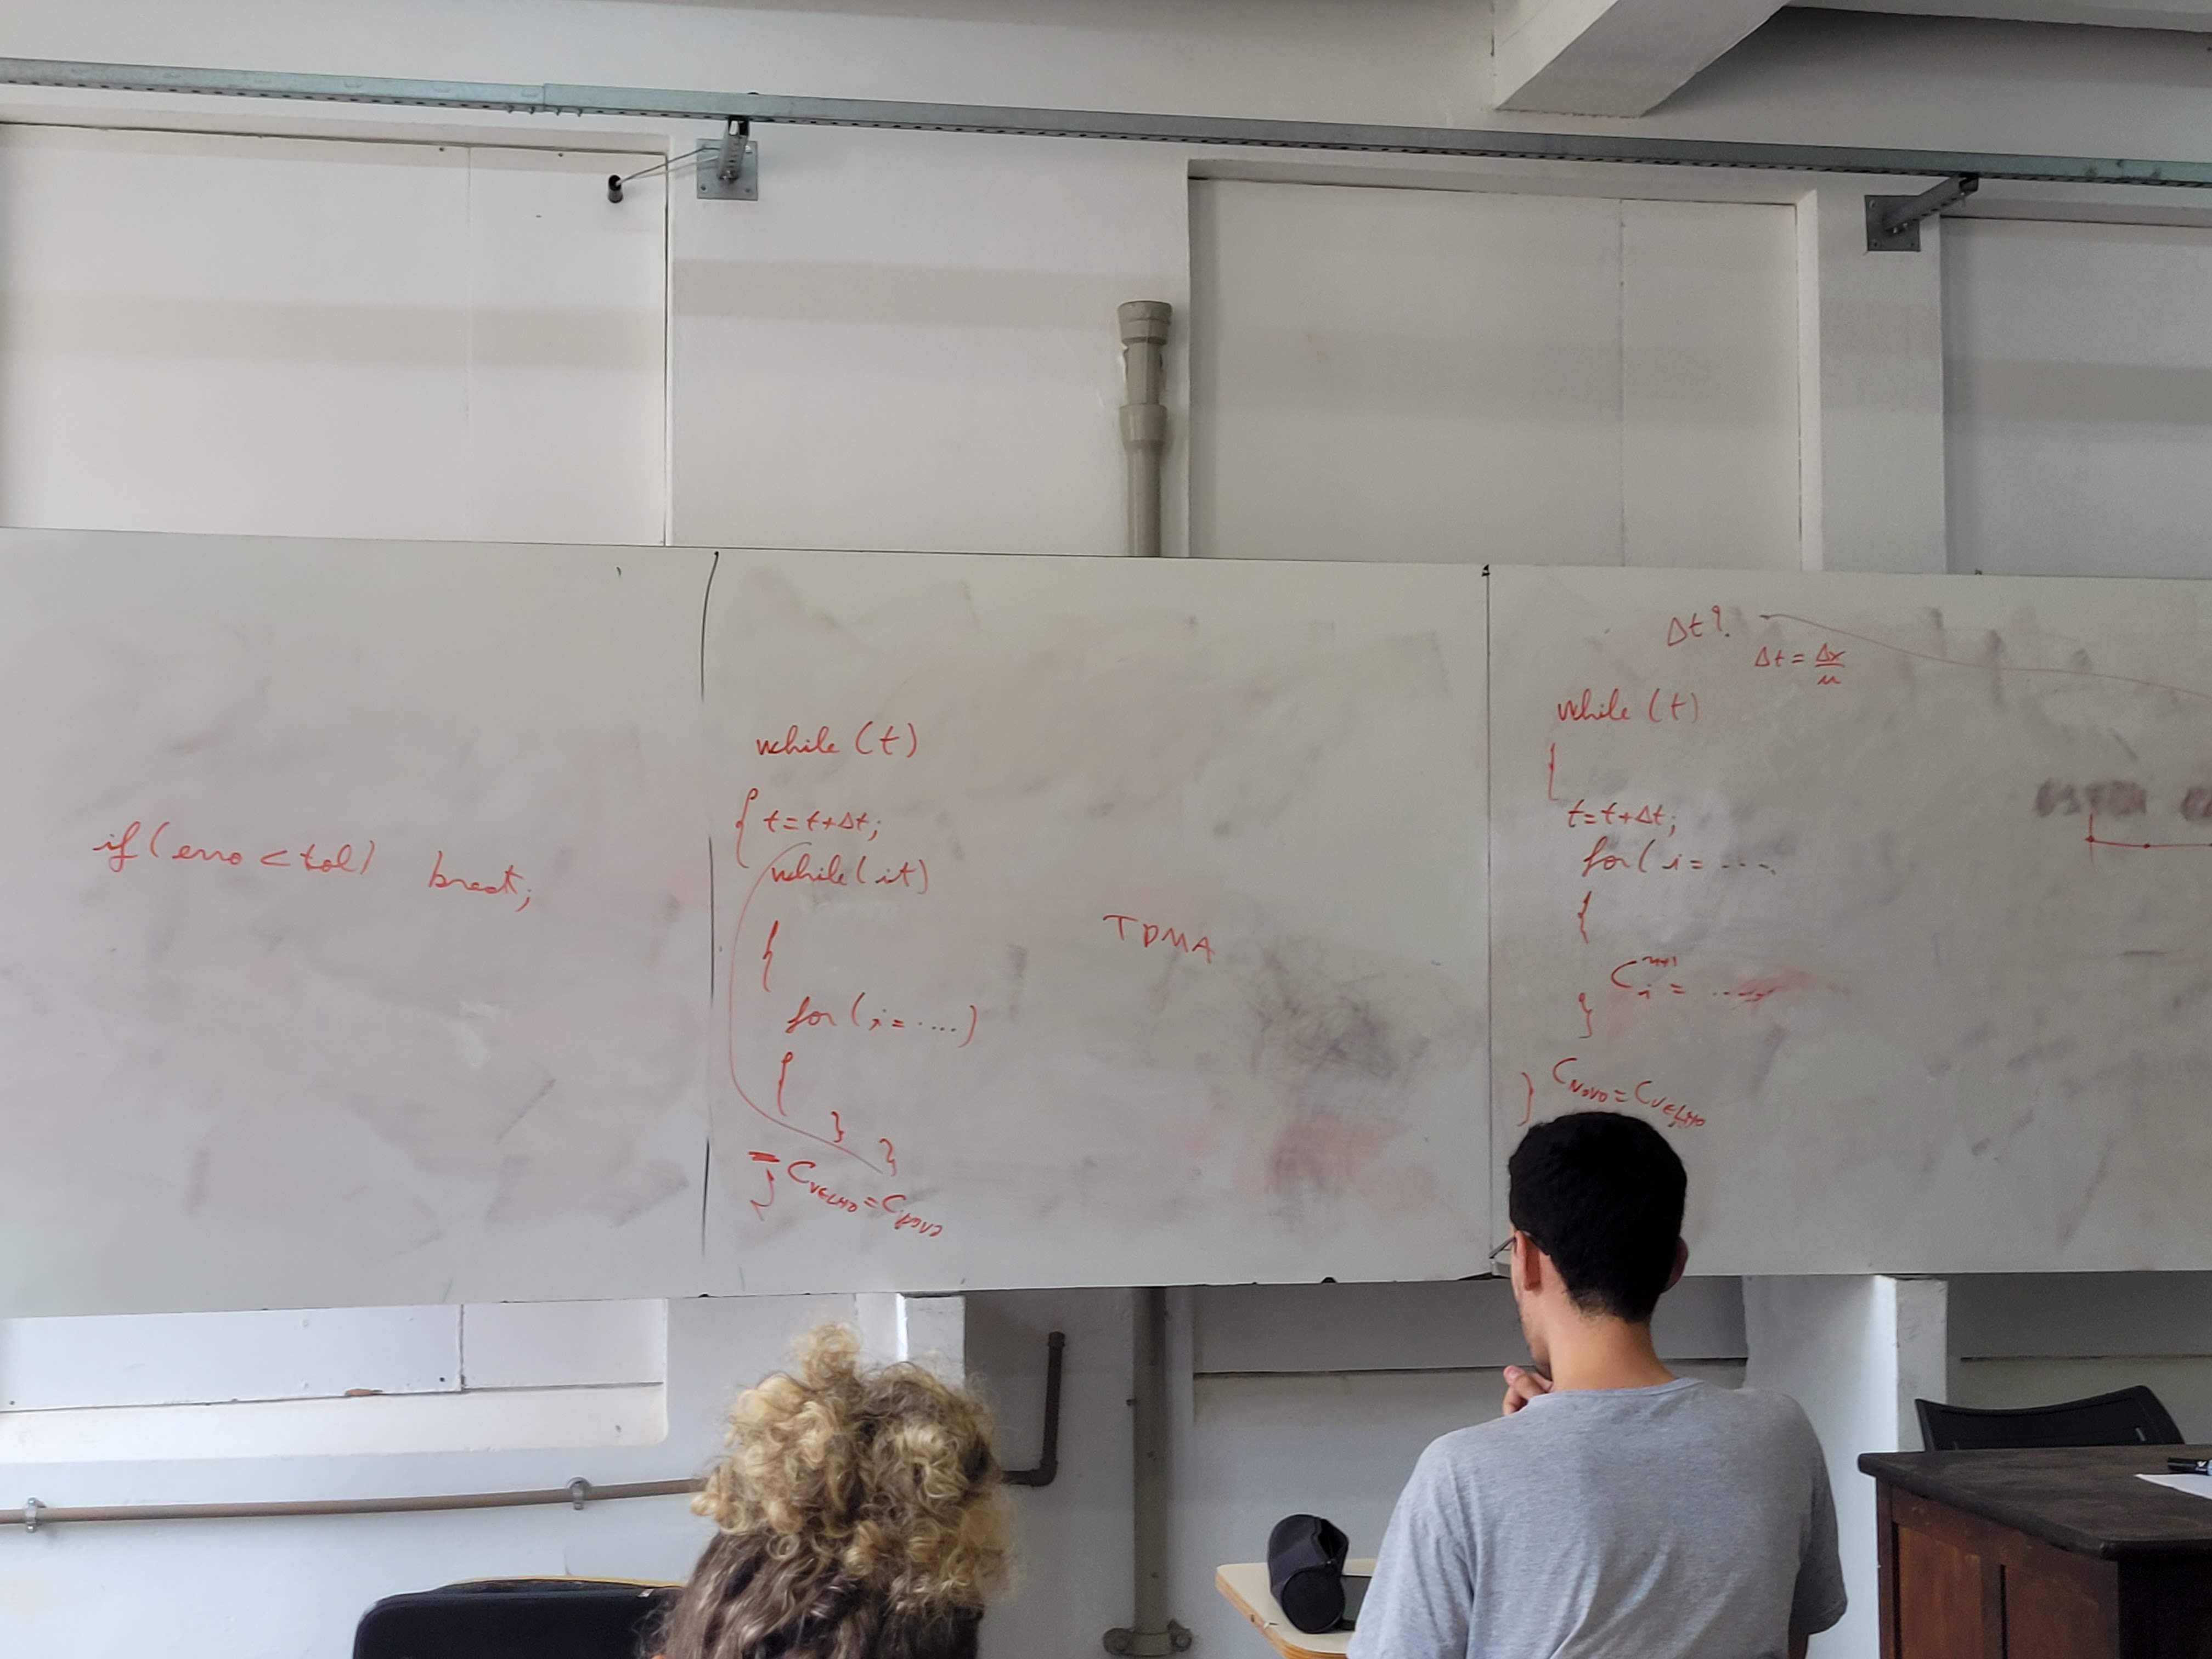 if (erro < tol) break;
while (t)
{ t = t + Δt;
while (it)
{
for (i = ....)
{
}
}
} C_VELHO = C_NOVO
TDMA
Δt?
Δt = Δx/u
while (t)
{
t = t + Δt;
for (i = ....
{
C_i^{n+1} = .....
}
} C_NOVO = C_VELHO